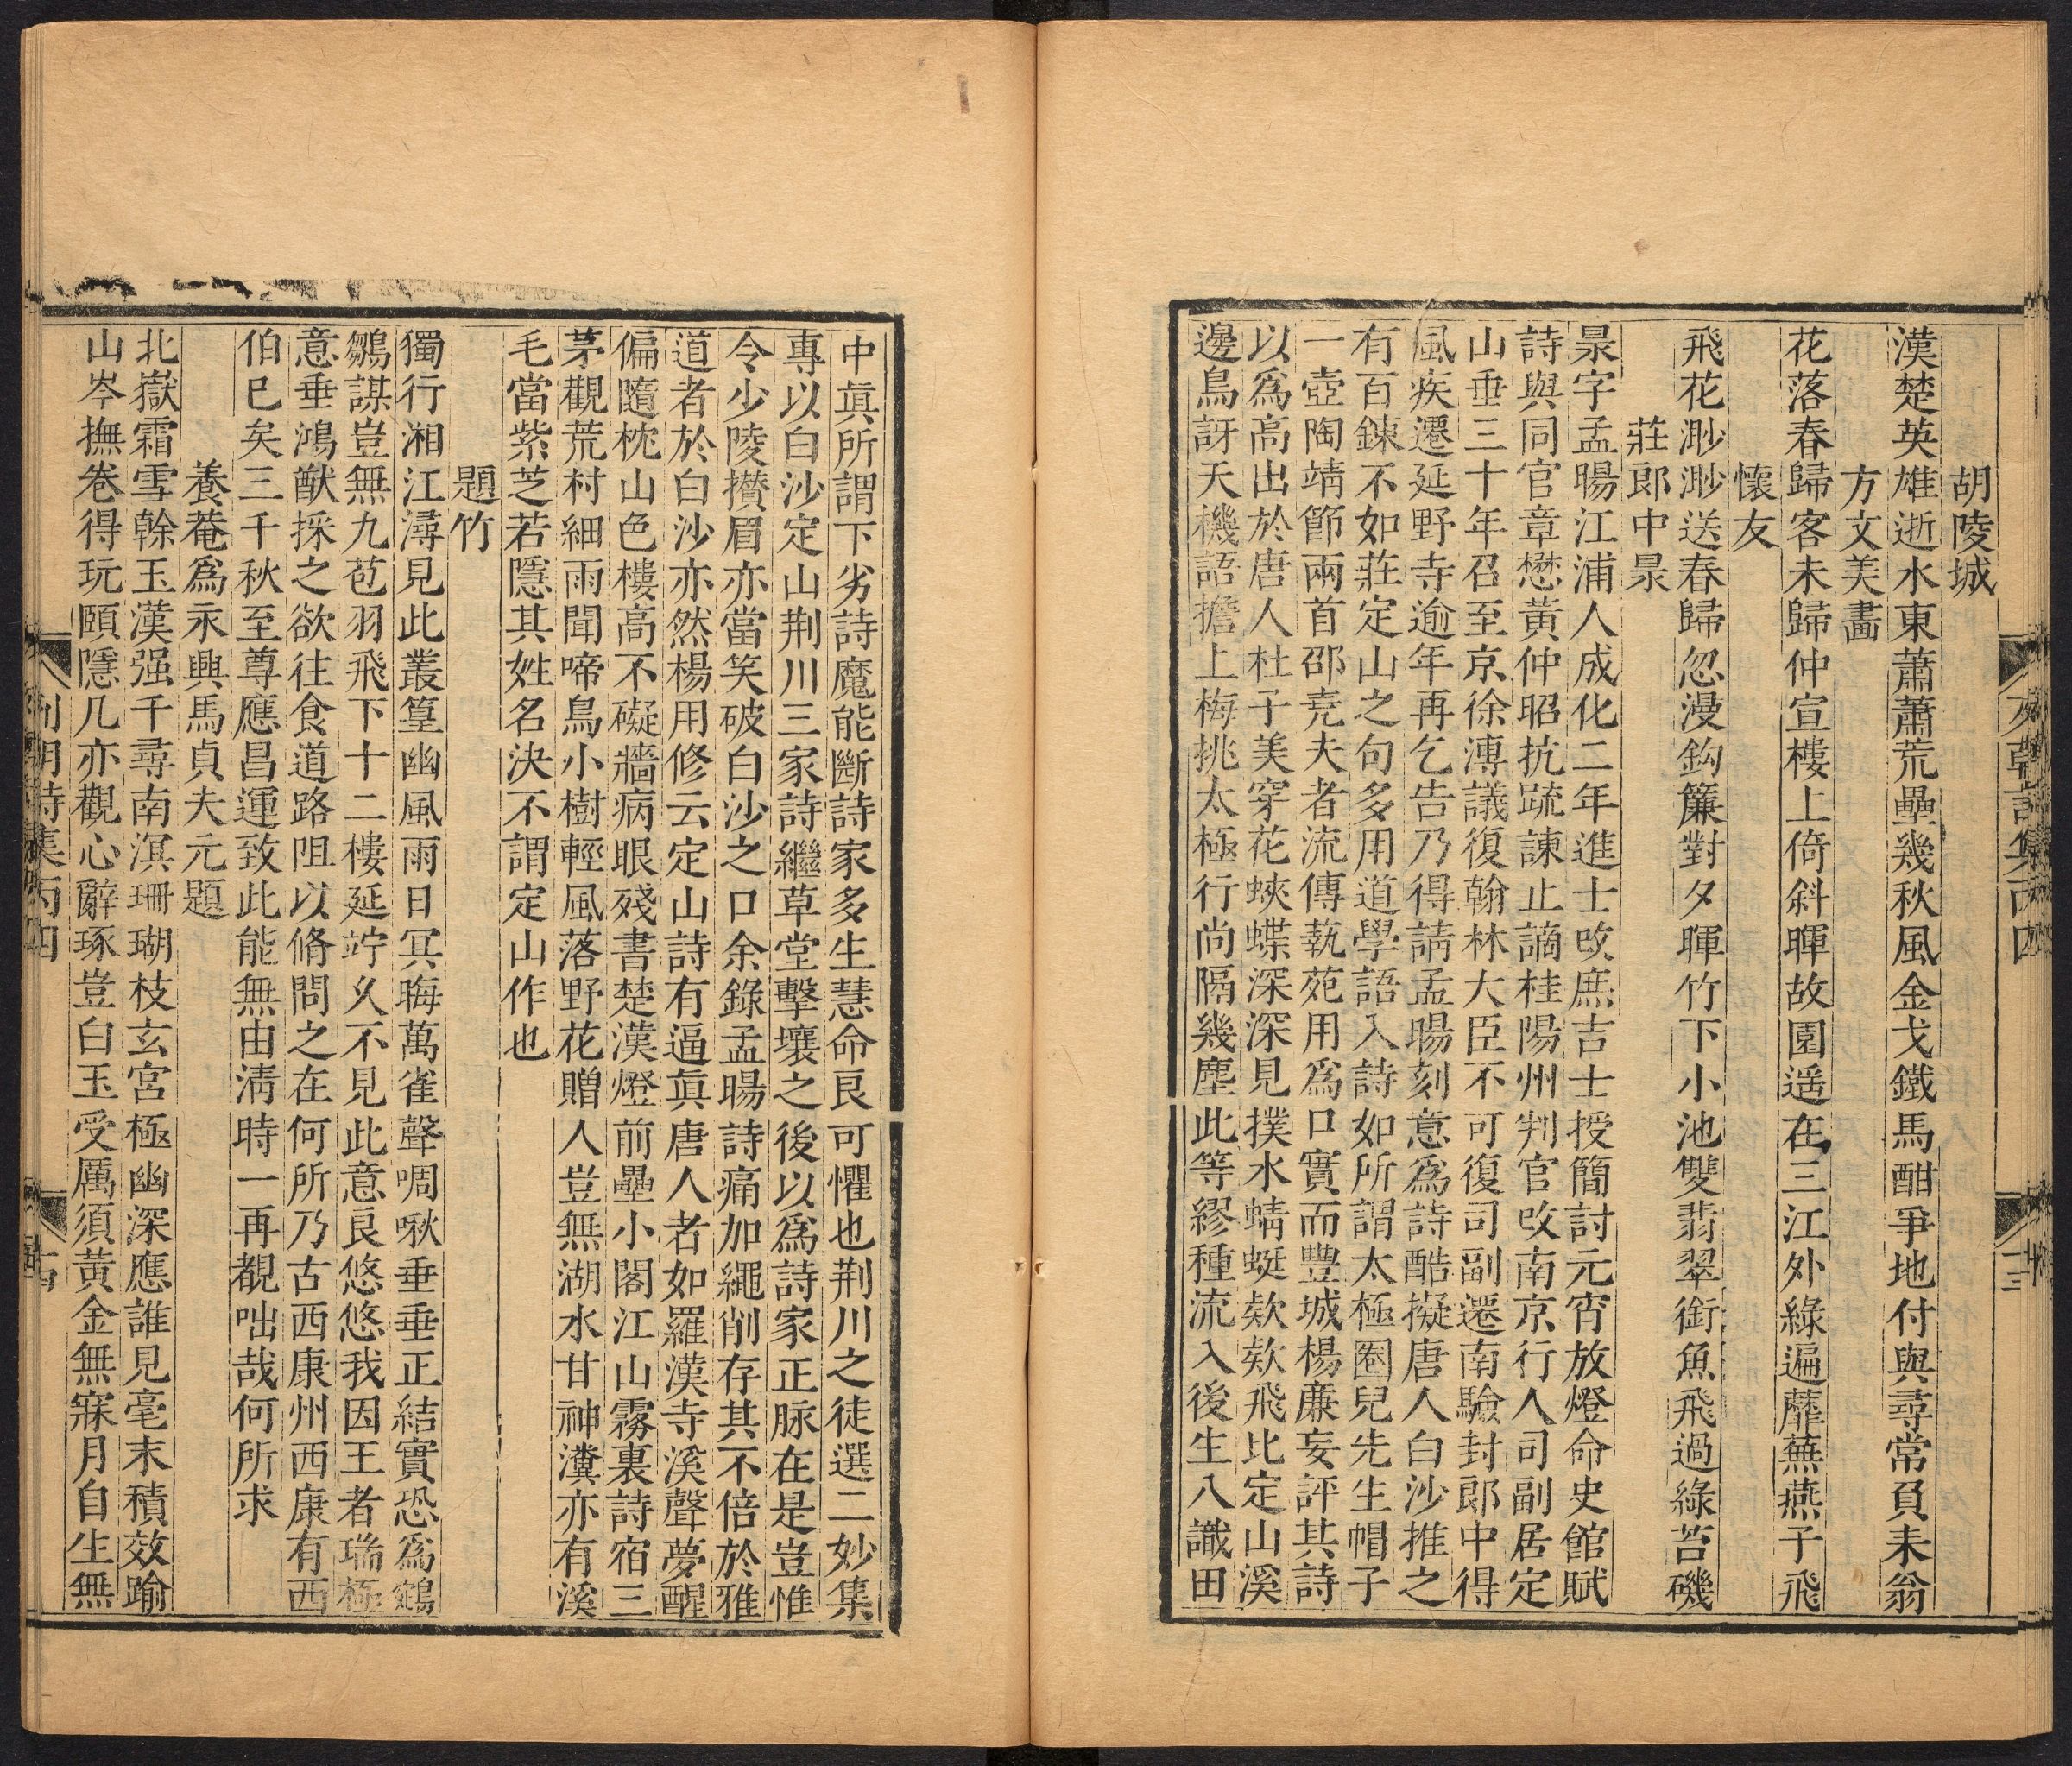 胡陵城
漢楚英雄逝水東蕭蕭荒壘幾秋風金戈鐵馬酣爭地付與尋常負耒翁
方文美畵
花落春歸客未歸仲宣樓上倚斜暉故園遥在三江外綠遍蘼蕪燕子飛
懷友
飛花渺渺送春歸忽漫鈎簾對夕暉竹下小池雙翡翠銜魚飛過綠苔磯
莊郎中㫤
㫤字孟暘江浦人成化二年進士攺庶吉士授簡討元宵放燈命史館賦
詩與同官章懋黃仲昭抗疏諫止謫桂陽州判官攺南京行人司副居定
山垂三十年召至京徐溥議復翰林大臣不可復司副遷南驗封郎中得
風疾遷延野寺逾年再乞告乃得請孟暘刻意爲詩酷擬唐人白沙推之
有百鍊不如莊定山之句多用道學語入詩如所謂太極圈兒先生帽子
一壺陶靖節兩首邵尭夫者流傳藝苑用爲口實而豐城楊廉妄評其詩
以爲高出於唐人杜子美穿花蛺蝶深深見撲水蜻蜓欵欵飛比定山溪
邊鳥訝天機語擔上梅挑太極行尚隔幾塵此等繆種流入後生八識田
中眞所謂下劣詩魔能斷詩家多生慧命良可懼也荆川之徒選二妙集
專以白沙定山荆川三家詩繼草堂擊壤之後以爲詩家正脉在是豈惟
令少陵攅眉亦當笑破白沙之口余錄孟暘詩痛加繩削存其不倍於雅
道者於白沙亦然楊用修云定山詩有逼眞唐人者如羅漢寺溪聲夢醒
偏隨枕山色樓高不礙牆病眼殘書楚漢燈前壘小閣江山霧裏詩宿三
茅觀荒村細雨聞啼鳥小樹輕風落野花贈人豈無湖水甘神瀵亦有溪
毛當紫芝若隱其姓名決不謂定山作也
題竹
獨行湘江潯見此叢篁幽風雨日冥晦萬雀聲啁啾垂垂正結實恐爲鵷
鶵謀豈無九苞羽飛下十二樓延竚乆不見此意良悠悠我因王者瑞極
意垂鴻猷採之欲往食道路阻以脩問之在何所乃古西康州西康有西
伯巳矣三千秋至尊應昌運致此能無由淸時一再覩咄哉何所求
養菴爲永興馬貞夫元題
北嶽霜雪榦玉漢强千尋南溟珊瑚枝玄宮極幽深應誰見毫末積效踰
山岑撫巻得玩頤隱几亦觀心辭琢豈白玉受厲須黃金無寐月自生無